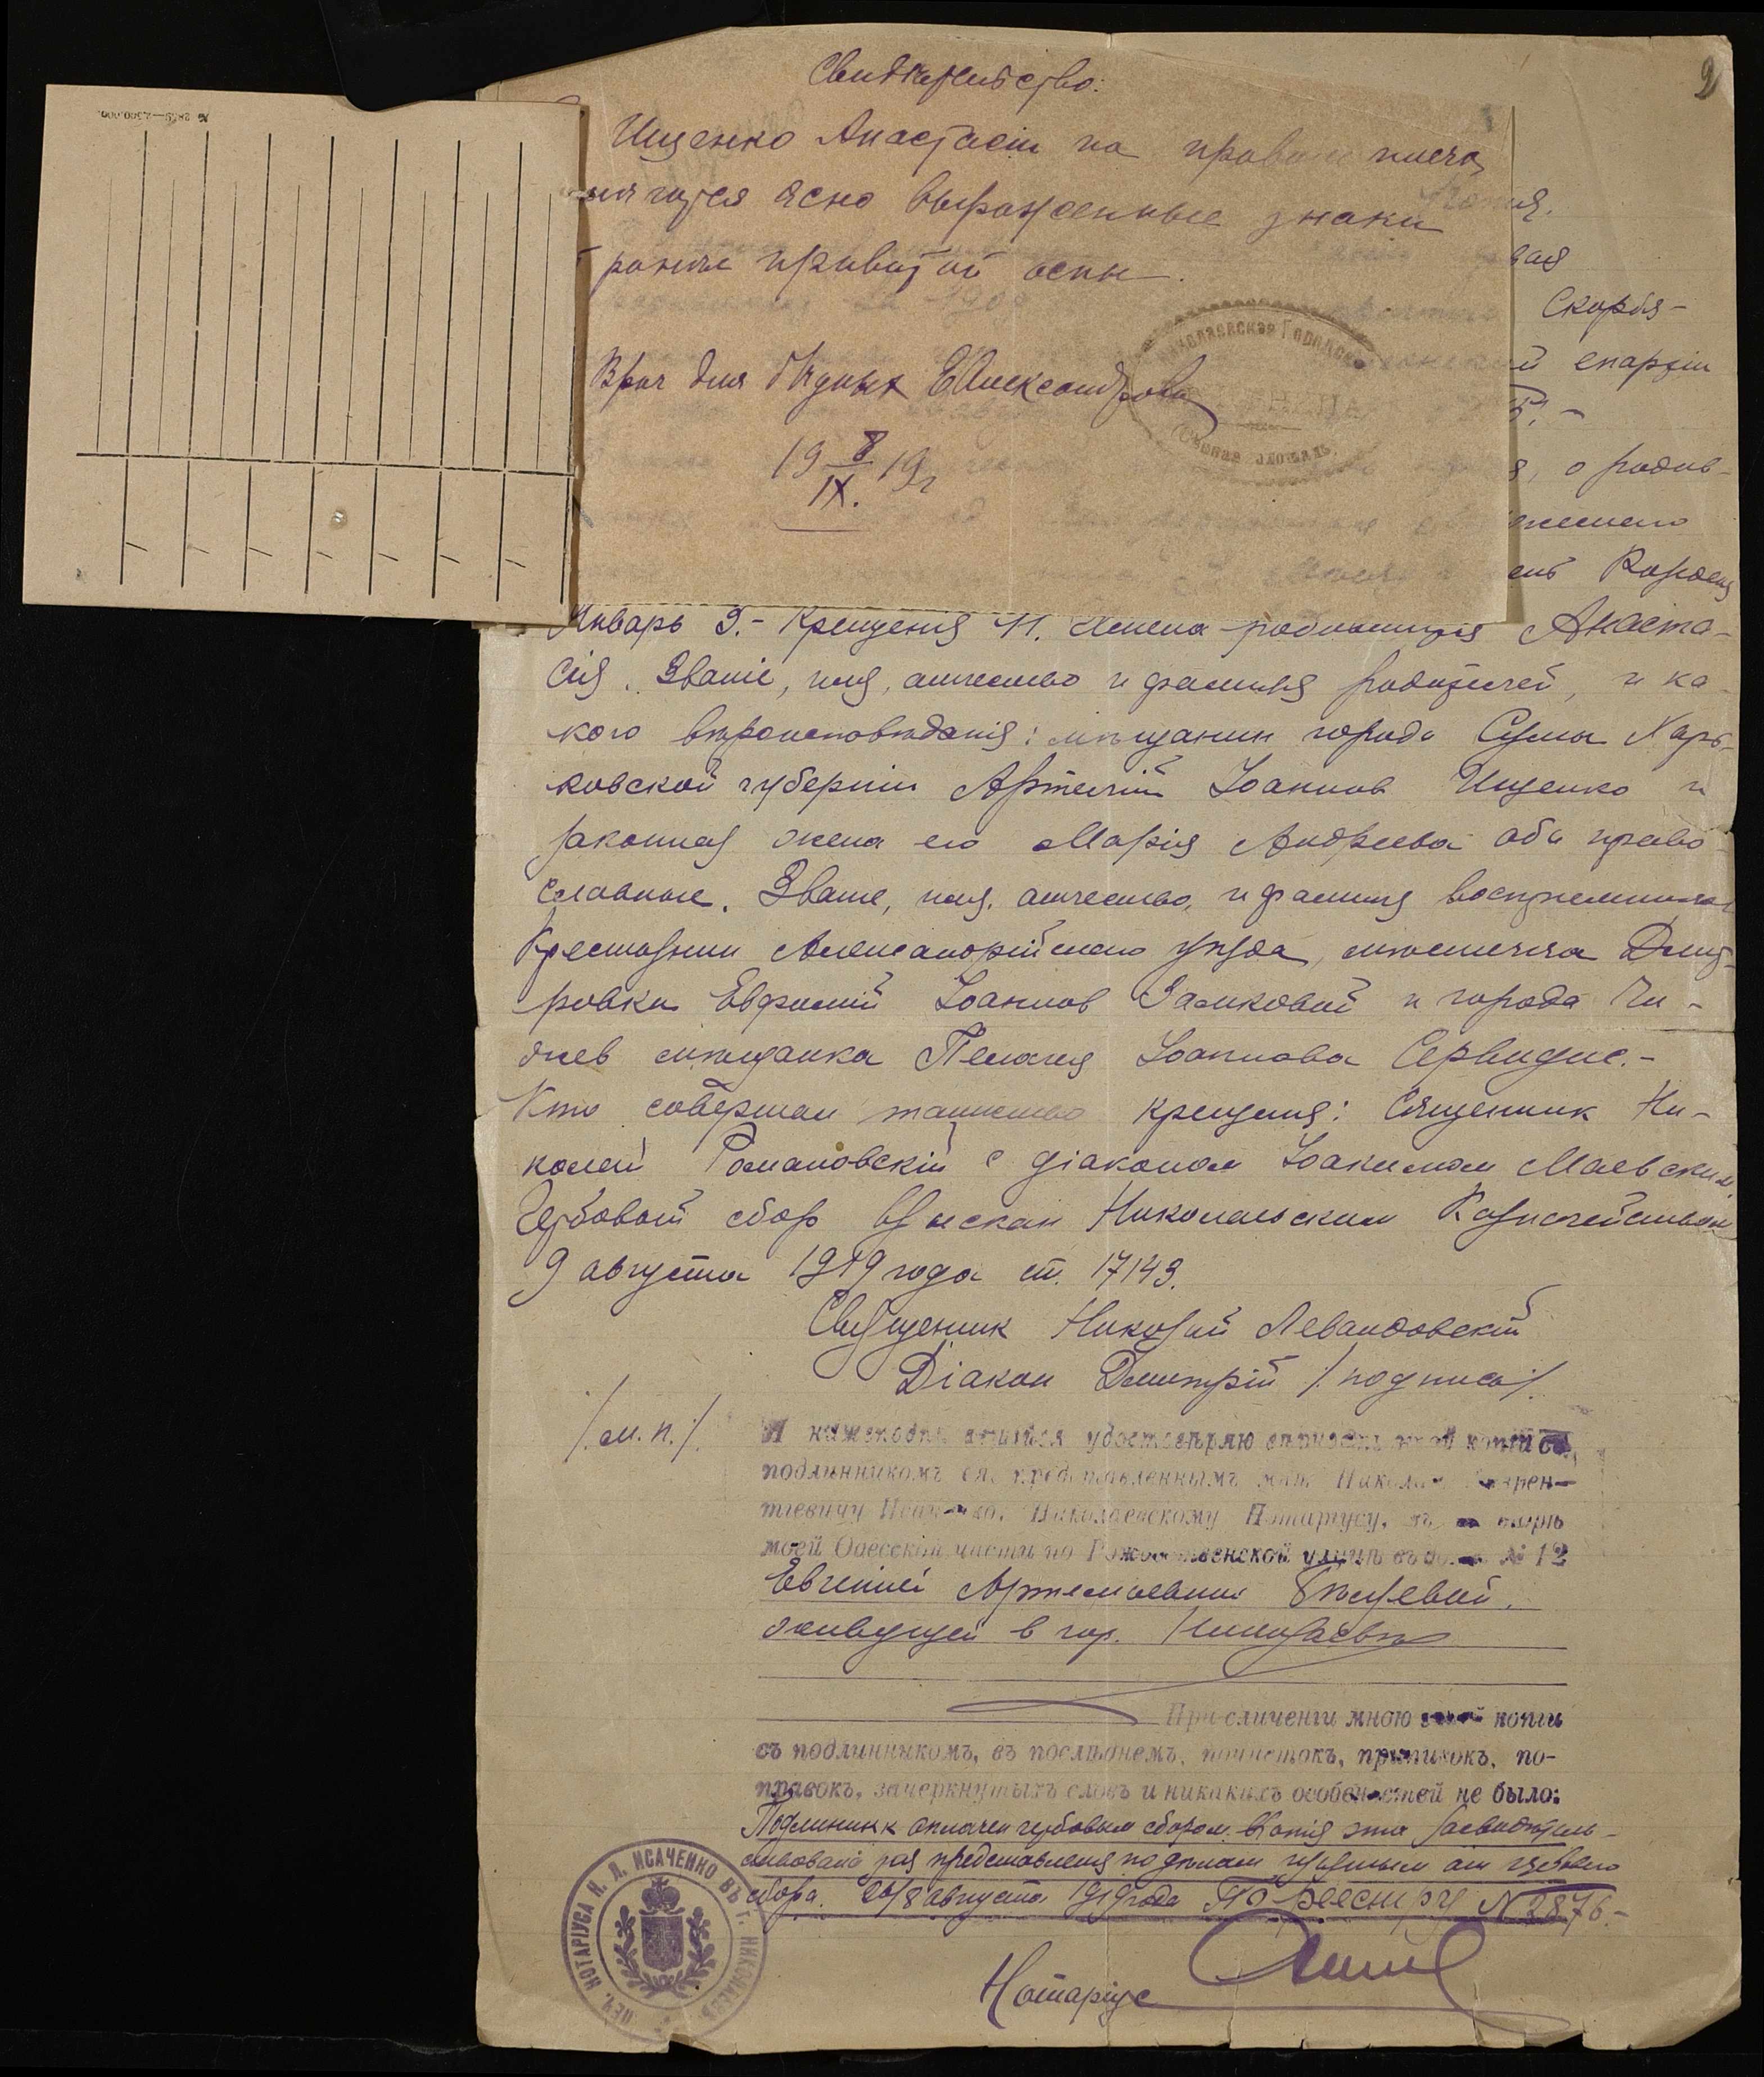 2
№ 2859—2.500.000.
Свидѣтельство:
Ищенко Анастасіи на правом плечѣ
имѣются ясно выраженные знаки
ранѣе привитой оспы.
Врач для бѣдных Е Александрова
19 8/IX. 19 г
Николаевская Городская
площадь.
вая
Скорбя-
епархіи
о родив-
Рождения
Январь 9.- Крещения 11. Имена родившихся Анаста-
сія. Званіе, имя, отчество и фамилия родителей, и ка-
кого вѣроисповѣданія: мѣщанин города Сумы Харь-
ковской губерніи Артемій Іоаннов Ищенко и
законная жена его Марія Андреева оба право-
славные. Званіе, имя, отчество, и фамилия восприемников
Крестьянин Александрійскаго уѣзда, мѣстечка Дмит-
ровки Евфимій Іоаннов Заиковой и города
мѣщанка Пелагея Іоаннова
Кто совершал таинство крещения: Священник Ни-
колай Романовскій с діаконом Іоакимом Маевским.
Гербовый сбор взыскан Николаевским Казначейством
9 августа 1919 года ст. 17143.
Священник Николай Левандовскій
Діакон Димитрій /:подписи:/
/:м.п.:/
Я нижеподписавшійся удостовѣряю вѣрность этой копіи съ
подлинникомъ ея, представленнымъ мнѣ Николаю Лаврен-
тіевичу Исаченко, Николаевскому Нотаріусу, въ конторѣ
моей Одесской части по Рождественской улицѣ въ домѣ № 12
Евгеніей Артемьевной
живущей в гор. Николаевѣ
При сличеніи мною этой копіи
съ подлинникомъ, въ послѣднемъ, почистокъ, приписокъ, по-
правокъ, зачеркнутыхъ словъ и никакихъ особенностей не было:
Подлинник оплачен гербовым сбором. Копія эта засвидѣтель-
ствована для представления по дѣлам изъятым от гербового
сбора. 26/8 августа 1919 года По реестру N 2876.-
ПЕЧ. НОТАРІУСА Н. Л. ИСАЧЕНКО ВЪ Г. НИКОЛАЕВѢ
Нотаріус